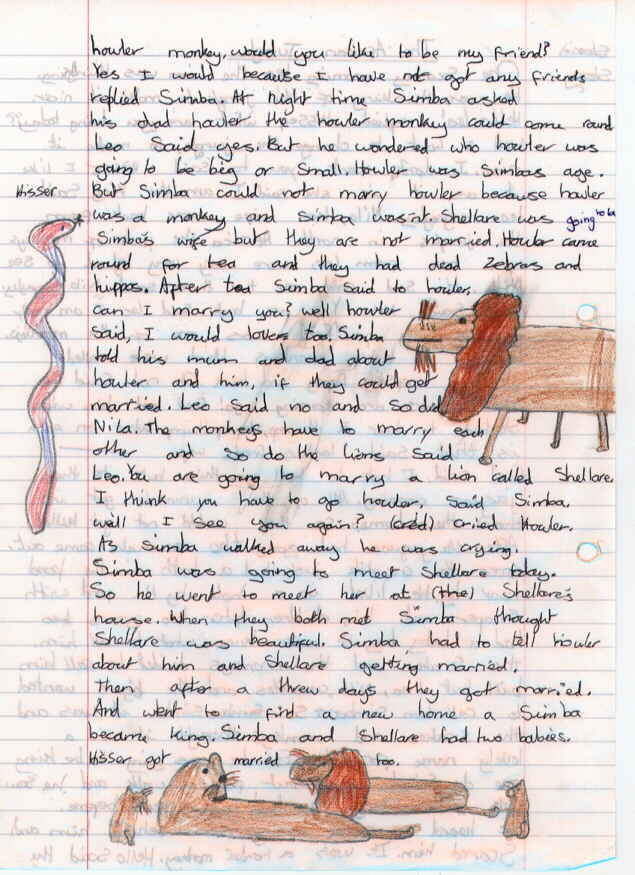 howler monkey, would you like to be my friend?
Yes I would because I have not got any friends
replied Simba. At night time Simba asked
his dad howler the howler monkey could come round
Leo Said yes. But he wondered who howler was
going to be big or small. Howler was Simbas age.
Hisser
But Simba could not marry howler because howler
was a monkey and Simba wasn't. Shellare was going to be
Simba's wife but they are not married. Howler came
round for tea and they had dead zebras and
hippos. After tea Simba said to howler,
can I marry you? well howler
said, I would lovers too. Simba
told his mum and dad about
howler and him, if they could get
married. Leo said no and so did
Nila. The monkeys have to marry each
other and so do the lions said
Leo. You are going to marry a lion called Shellare.
I think you have to go howler, said Simba.
will I see you again? (cred) cried Howler.
As Simba walked away he was crying.
Simba was going to meet Shellare today.
So he went to meet her at (the) Shellare's
house. When they both met Simba thought
Shellare was beautiful. Simba had to tell howler
about him and Shellare getting married.
Then after a threw days they got married.
And went to find a new home a Simba
became King. Simba and Shellare had two babies.
Hisser got married too.